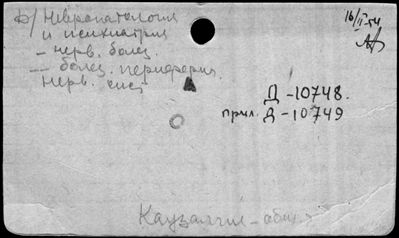 б/ Невропатология
и психиатрия
– нерв. болез.
– болез. периферич.
нерв. сист
16/II 54
Д – 10748.
прил. Д – 10749
Каузалгии – общ